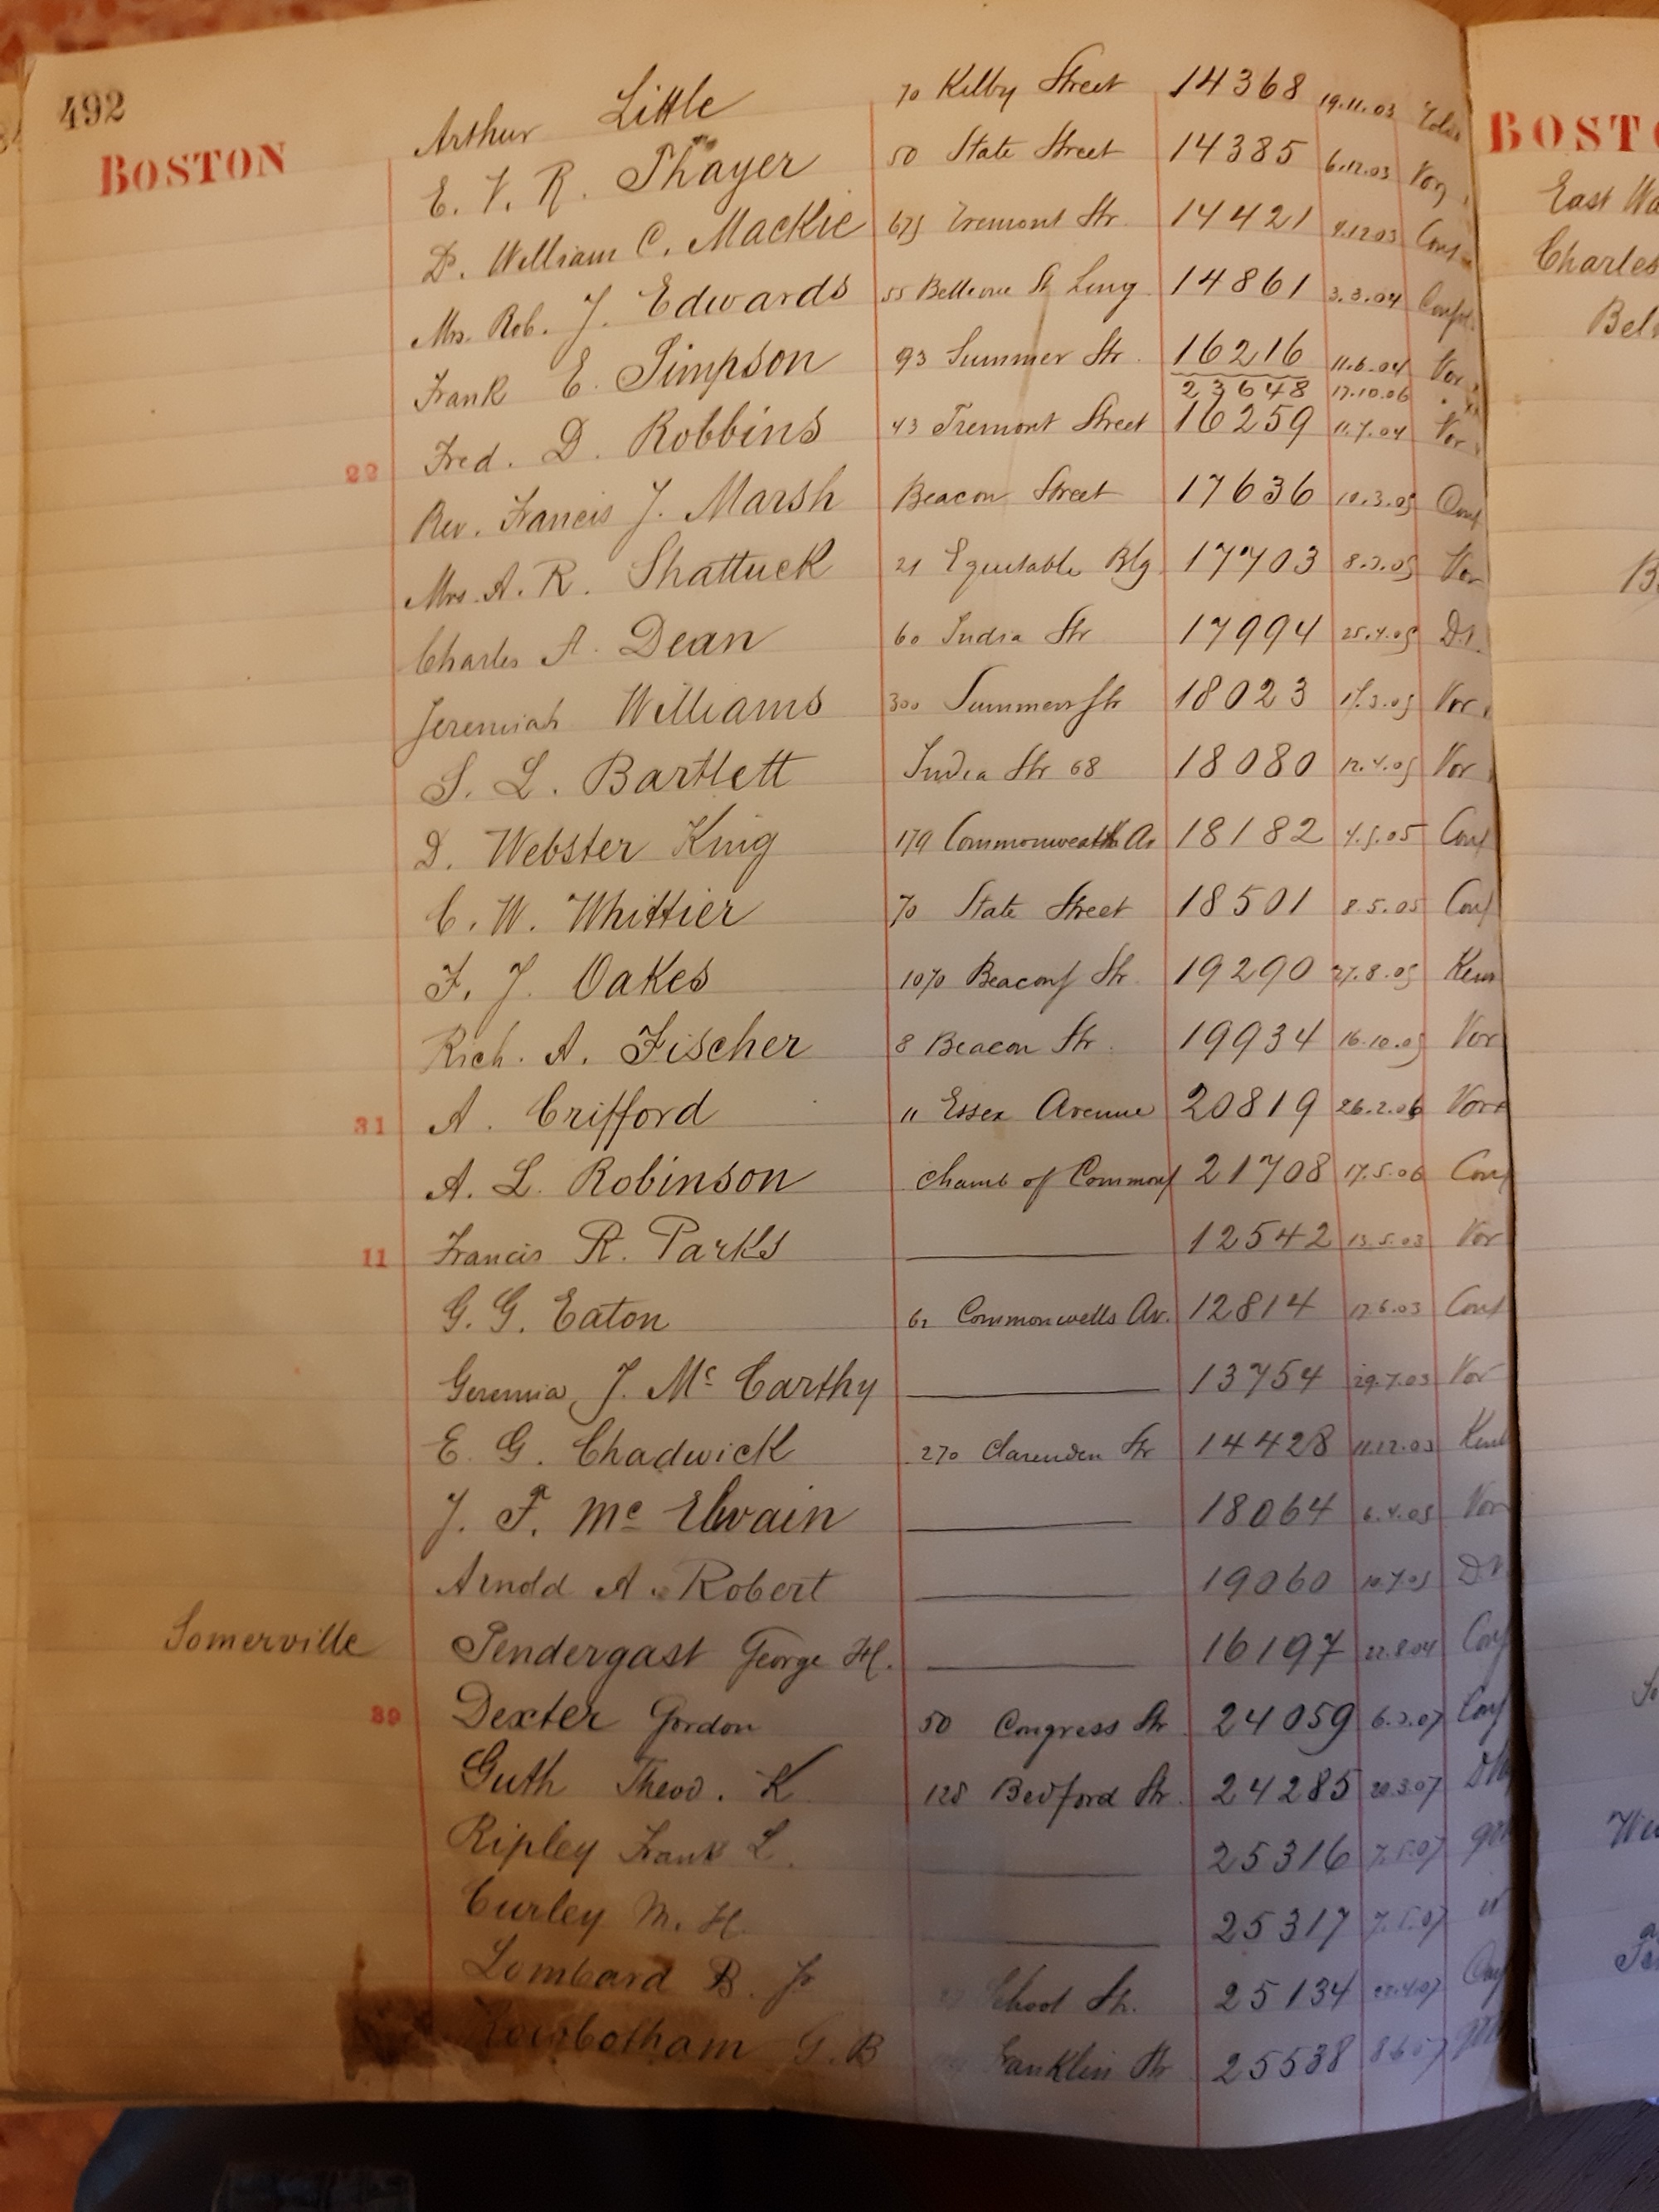 492
BOSTON
Arthur Little 70 Kilby Street 14368 19.11.03
E. V. R. Thayer 50 State Street 14385 6.12.03 Vor
D. William C. Mackie 675 Tremont Str. 14421 9.12.03 Cons
Mrs. Rob. J. Edwards 55 Bellevue St 14861 3.3.04
Frank E. Simpson 93 Summer Str. 16216 11.6.04 Vor
23648 17.10.06
22 Fred. D. Robbins 43 Tremont Street 16259 11.7.04 Vor
Rev. Francis J. Marsh Beacon Street 17636 10.3.05
Mrs. A. R. Shattuck 21 Equitable Blg 17703 8.3.05 Vor
Charles A. Dean 60 India Str 17994 25.4.05
Jeremiah Williams 300 Summer Str 18023 Vor
S. L. Bartlett India Str 68 18080 12.4.05 Vor
D. Webster King 179 Commonwealth Av 18182 4.5.05 Conf
C. W. Whittier 70 State Street 18501 8.5.05 Conf
F. J. Oakes 1070 Beacon Str. 19290 27.8.05
Rich. A. Fischer 8 Beacon Str. 19934 16.10.05 Vor
31 A. Crifford 11 Essex Avenue 20819 26.2.06 Vor
A. L. Robinson Chamb of Comm 21708 17.5.06 Conf
11 Francis R. Parks 12542 13.5.03 Vor
G. G. Eaton 62 Commonwells Av. 12814 12.6.03 Conf
Geremia J. Mc Carthy 13754 29.7.03 Vor
E. G. Chadwick 270 Clarenden Str 14428 11.12.03
J. F. Mc Elwain 18064 6.4.05 Vor
Arnold A. Robert 19060 10.7.05
Somerville Pendergast George H. 16197 22.8.04 Conf
39 Dexter Gordon 50 Congress Str 24059 6.3.07 Conf
Guth Theod. K. 128 Bedford Str. 24285 20.3.07
Ripley Frank L. 25316 7.5.07
Curley M. H. 25317 7.5.07
Lombard B. Jr School Str. 25134 22.4.07
G. B Franklin Str 25538 8.6.07
BOST
East Wa
Charles
Bel